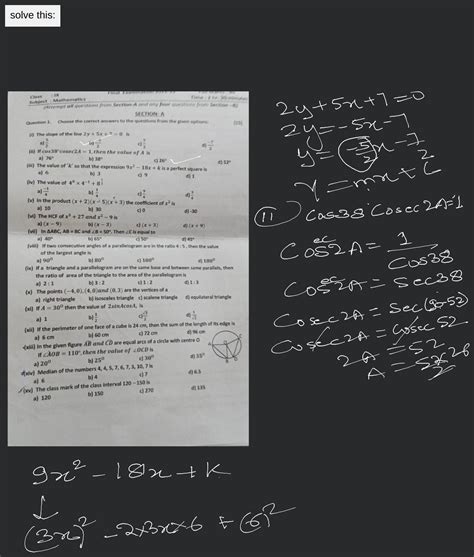 solve this:
Class : IX
Subject : Mathematics
Time : 2 hr. 30 minutes
(Attempt all questions from Section-A and any four questions from Section -B)
SECTION: A
Question 1. Choose the correct answers to the questions from the given options: (15)
(i) The slope of the line 2y + 5x + 7 = 0 is
(ii) If cos38° cosec2A = 1, then the value of A is
a) 76° b) 38° c) 26° d) 52°
(iii) The value of 'k' so that the expression 9x² − 18x + k is a perfect square is
a) 6 b) 3 c) 9 d) 1
(iv) The value of
(v) In the product (x + 2)(x − 5)(x + 3) the coefficient of x² is
a) 10 b) 30 c) 0 d) -30
(vi) The HCF of x³ + 27 and x² − 9 is
a) (x − 9) b) (x − 3) c) (x + 3) d) (x + 9)
(vii) In ΔABC, AB = BC and ∠B = 50°. Then ∠C is equal to
a) 40° b) 65° c) 50° d) 45°
(viii) If two consecutive angles of a parallelogram are in the ratio 4 : 5 , then the value
of the largest angle is
a) 90° b) 80° c) 100° d) 180°
(ix) If a triangle and a parallelogram are on the same base and between same parallels, then
the ratio of area of the triangle to the area of the parallelogram is
a) 2 : 1 b) 3 : 2 c) 1 : 2 d) 1 : 3
(x) The points (−4,0), (4,0) and (0,3) are the vertices of a
a) right triangle b) isosceles triangle c) scalene triangle d) equilateral triangle
(xi) If A = 30° then the value of 2sinAcosA, is
(xii) If the perimeter of one face of a cube is 24 cm, then the sum of the length of its edge is
a) 6 cm b) 60 cm c) 72 cm d) 96 cm
(xiii) In the given figure AB and CD are equal arcs of a circle with centre O
If ∠AOB = 110°, then the value of ∠OCD is
a) 20° b) 25° c) 30° d) 35°
(xiv) Median of the numbers 4, 4, 5, 7, 6, 7, 3, 10, 7 is
a) 6 b) 4 c) 7 d) 6.5
(xv) The class mark of the class interval 120 −150 is
a) 120 b) 150 c) 270 d) 135
2y+5x+7=0
2y=-5x-7
y=mx+c
(ii) Cos38 Cosec2A=1
Cosec2A = 1/Cos38
Cosec2A = Sec38
Cosec2A = Sec(90-52)
Cosec2A = Cosec52
2A = 52
9x² - 18x + k
(3x)² - 2×3x×6 + (6)²